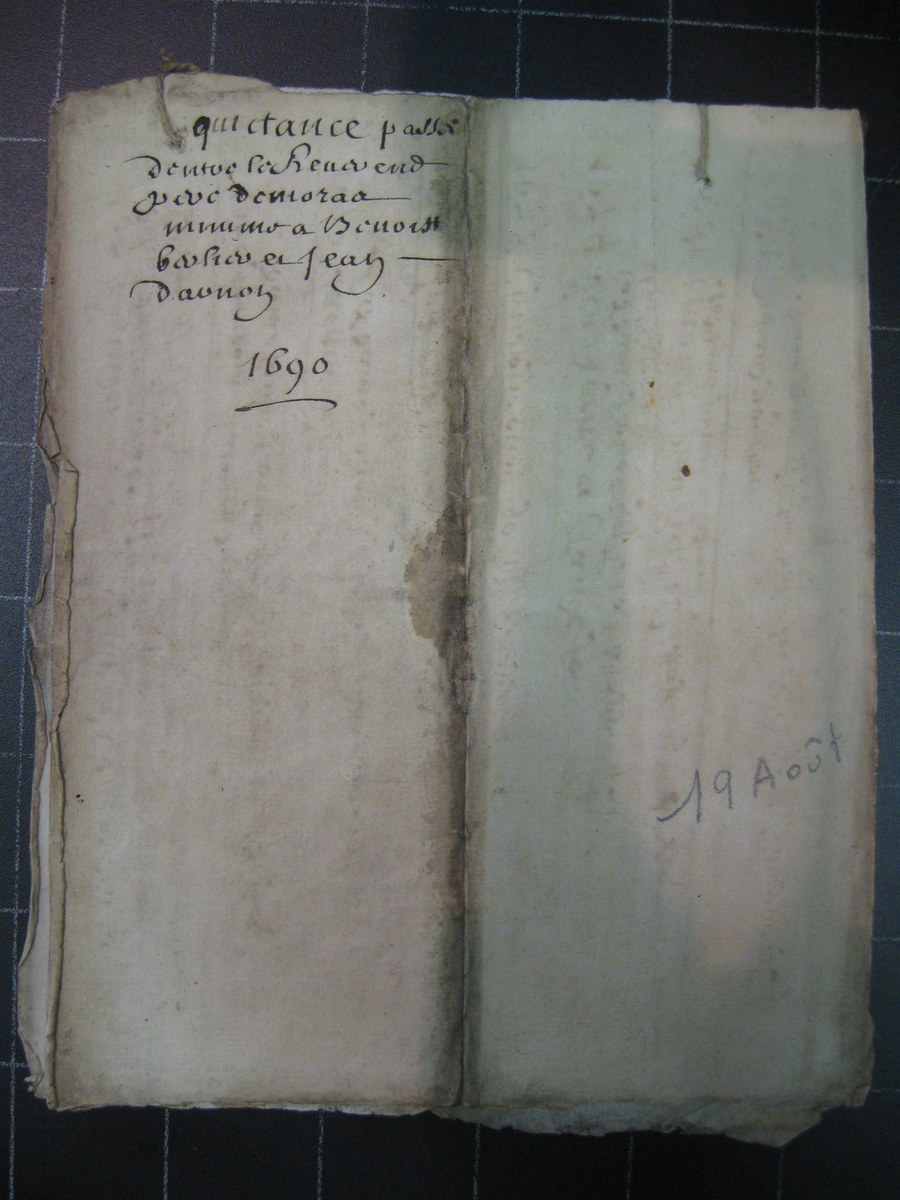 quictance passé
Dentre le Reverend
pere demoraa
minime a Benoist
berlier et Jean
Davnon
1690
19 Août